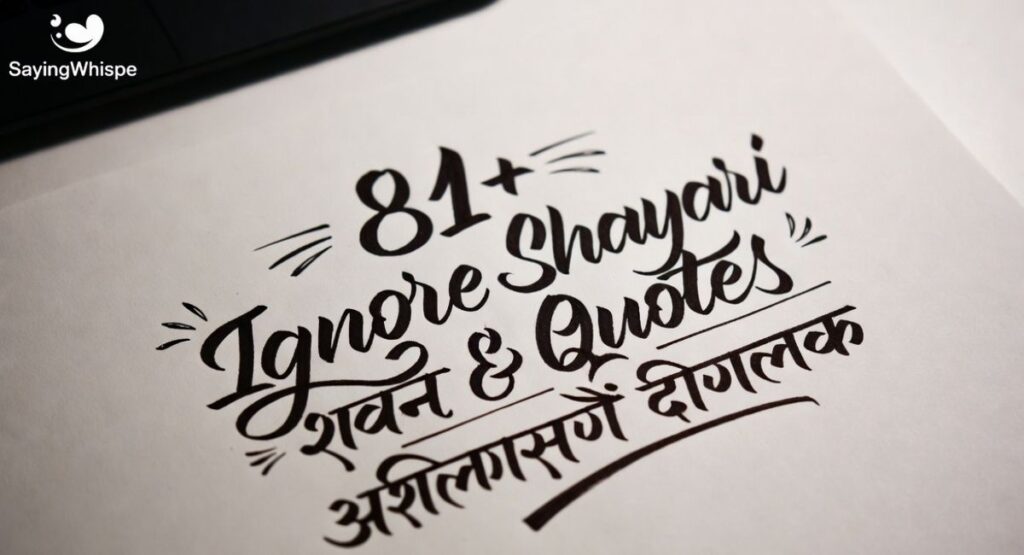 SayingWhispe
81+
Ignore Shayari
शवन & Quotes
अशीलगसगैं दीगलक